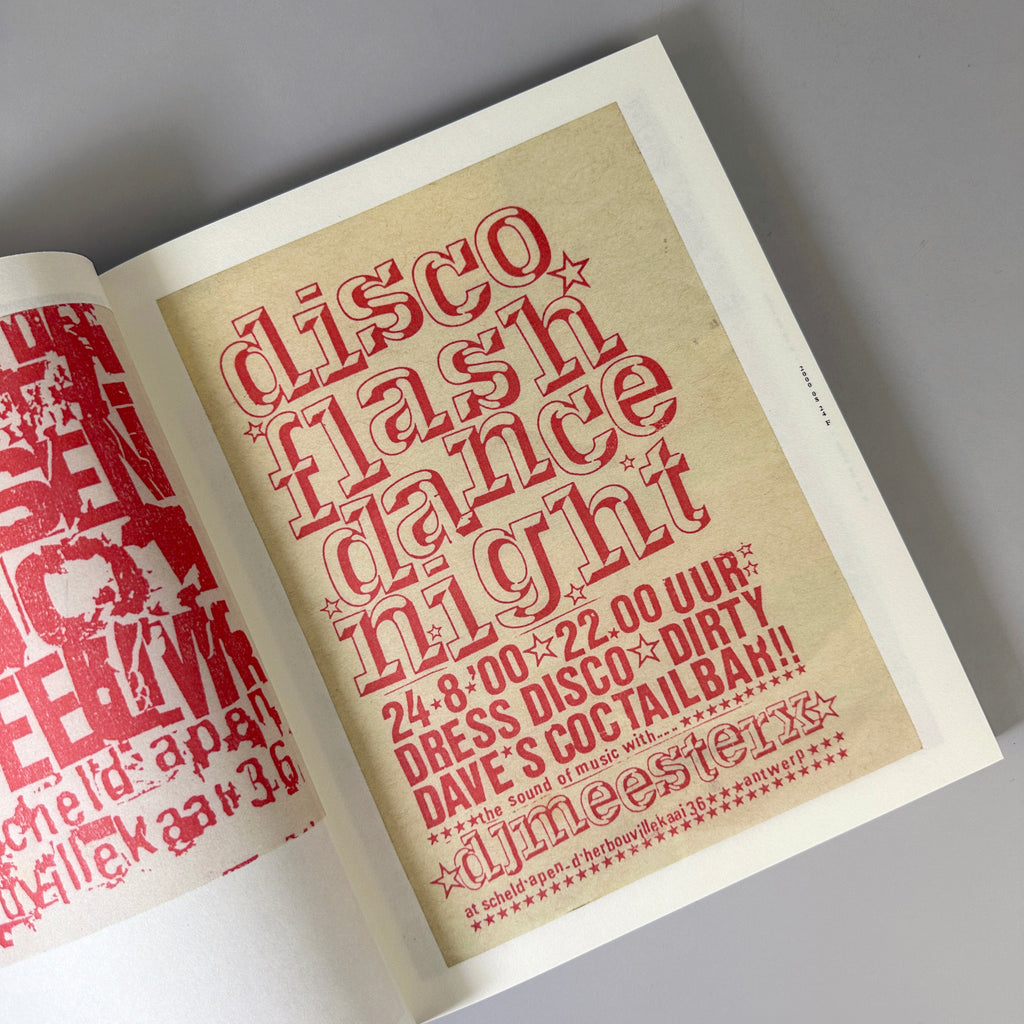 SEN
scheld-apen
uvillekaai 36
disco
flash
dance
night
24.8.'00 22.00 UUR
DRESS DISCO DIRTY
DAVE'S COCTAILBAR!!
the sound of music with....
djmeesterx
at scheld-apen-d'herbouvillekaai 36 antwerp
2000 08 24F